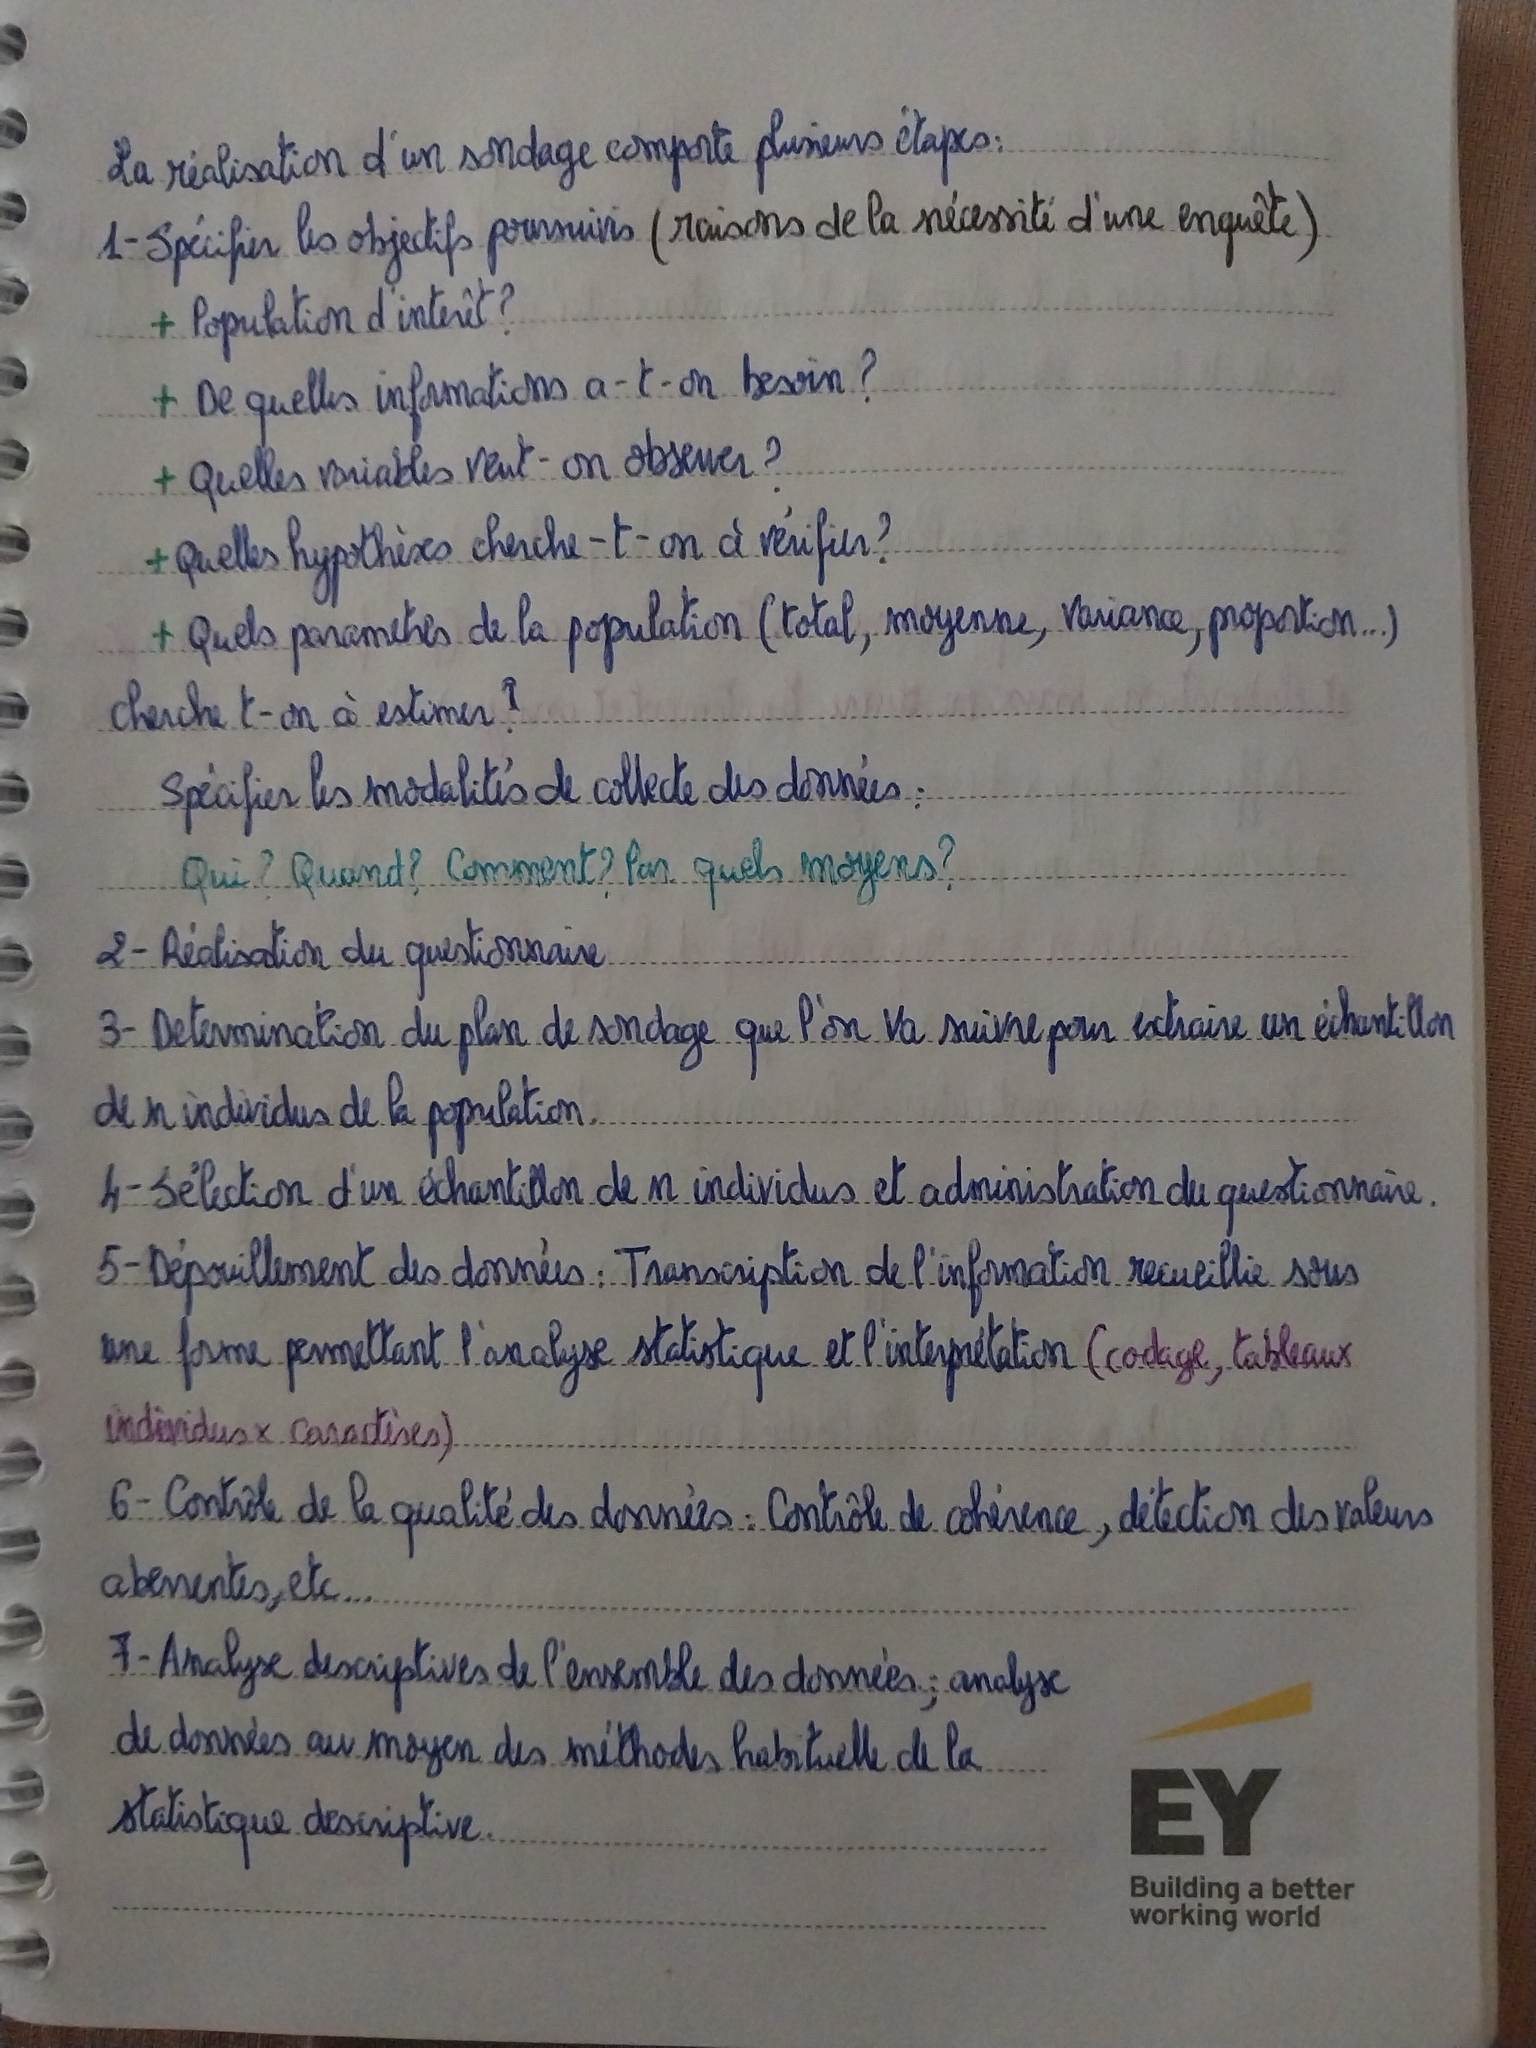 La réalisation d'un sondage comporte plusieurs étapes:
1- Spécifier les objectifs poursuivis (raisons de la nécessité d'une enquête)
+ Population d'intérêt?
+ De quelles informations a-t-on besoin?
+ Quelles variables veut-on observer?
+ Quelles hypothèses cherche-t-on à vérifier?
+ Quels paramètres de la population (total, moyenne, variance, proportion...)
cherche t-on à estimer?
Spécifier les modalités de collecte des données:
Qui? Quand? Comment? Par quels moyens?
2- Réalisation du questionnaire
3- Determination du plan de sondage que l'on va suivre pour extraire un échantillon
de n individus de la population.
4- Sélection d'un échantillon de n individus et administration du questionnaire.
5- Dépouillement des données: Transcription de l'information recueillie sous
une forme permettant l'analyse statistique et l'interprétation (codage, tableaux
individus x caractères)
6- Contrôle de la qualité des données: Contrôle de cohérence, détection des valeurs
aberrentes, etc...
7- Analyse descriptives de l'ensemble des données; analyse
de données au moyen des méthodes habituelle de la
statistique descriptive.
EY
Building a better
working world